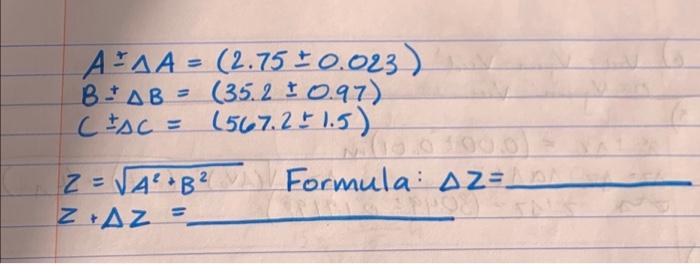 A ± ΔA = (2.75 ± 0.023)
B ± ΔB = (35.2 ± 0.97)
C ± ΔC = (567.2 ± 1.5)
Z = √A² + B² Formula: ΔZ=
Z + ΔZ =